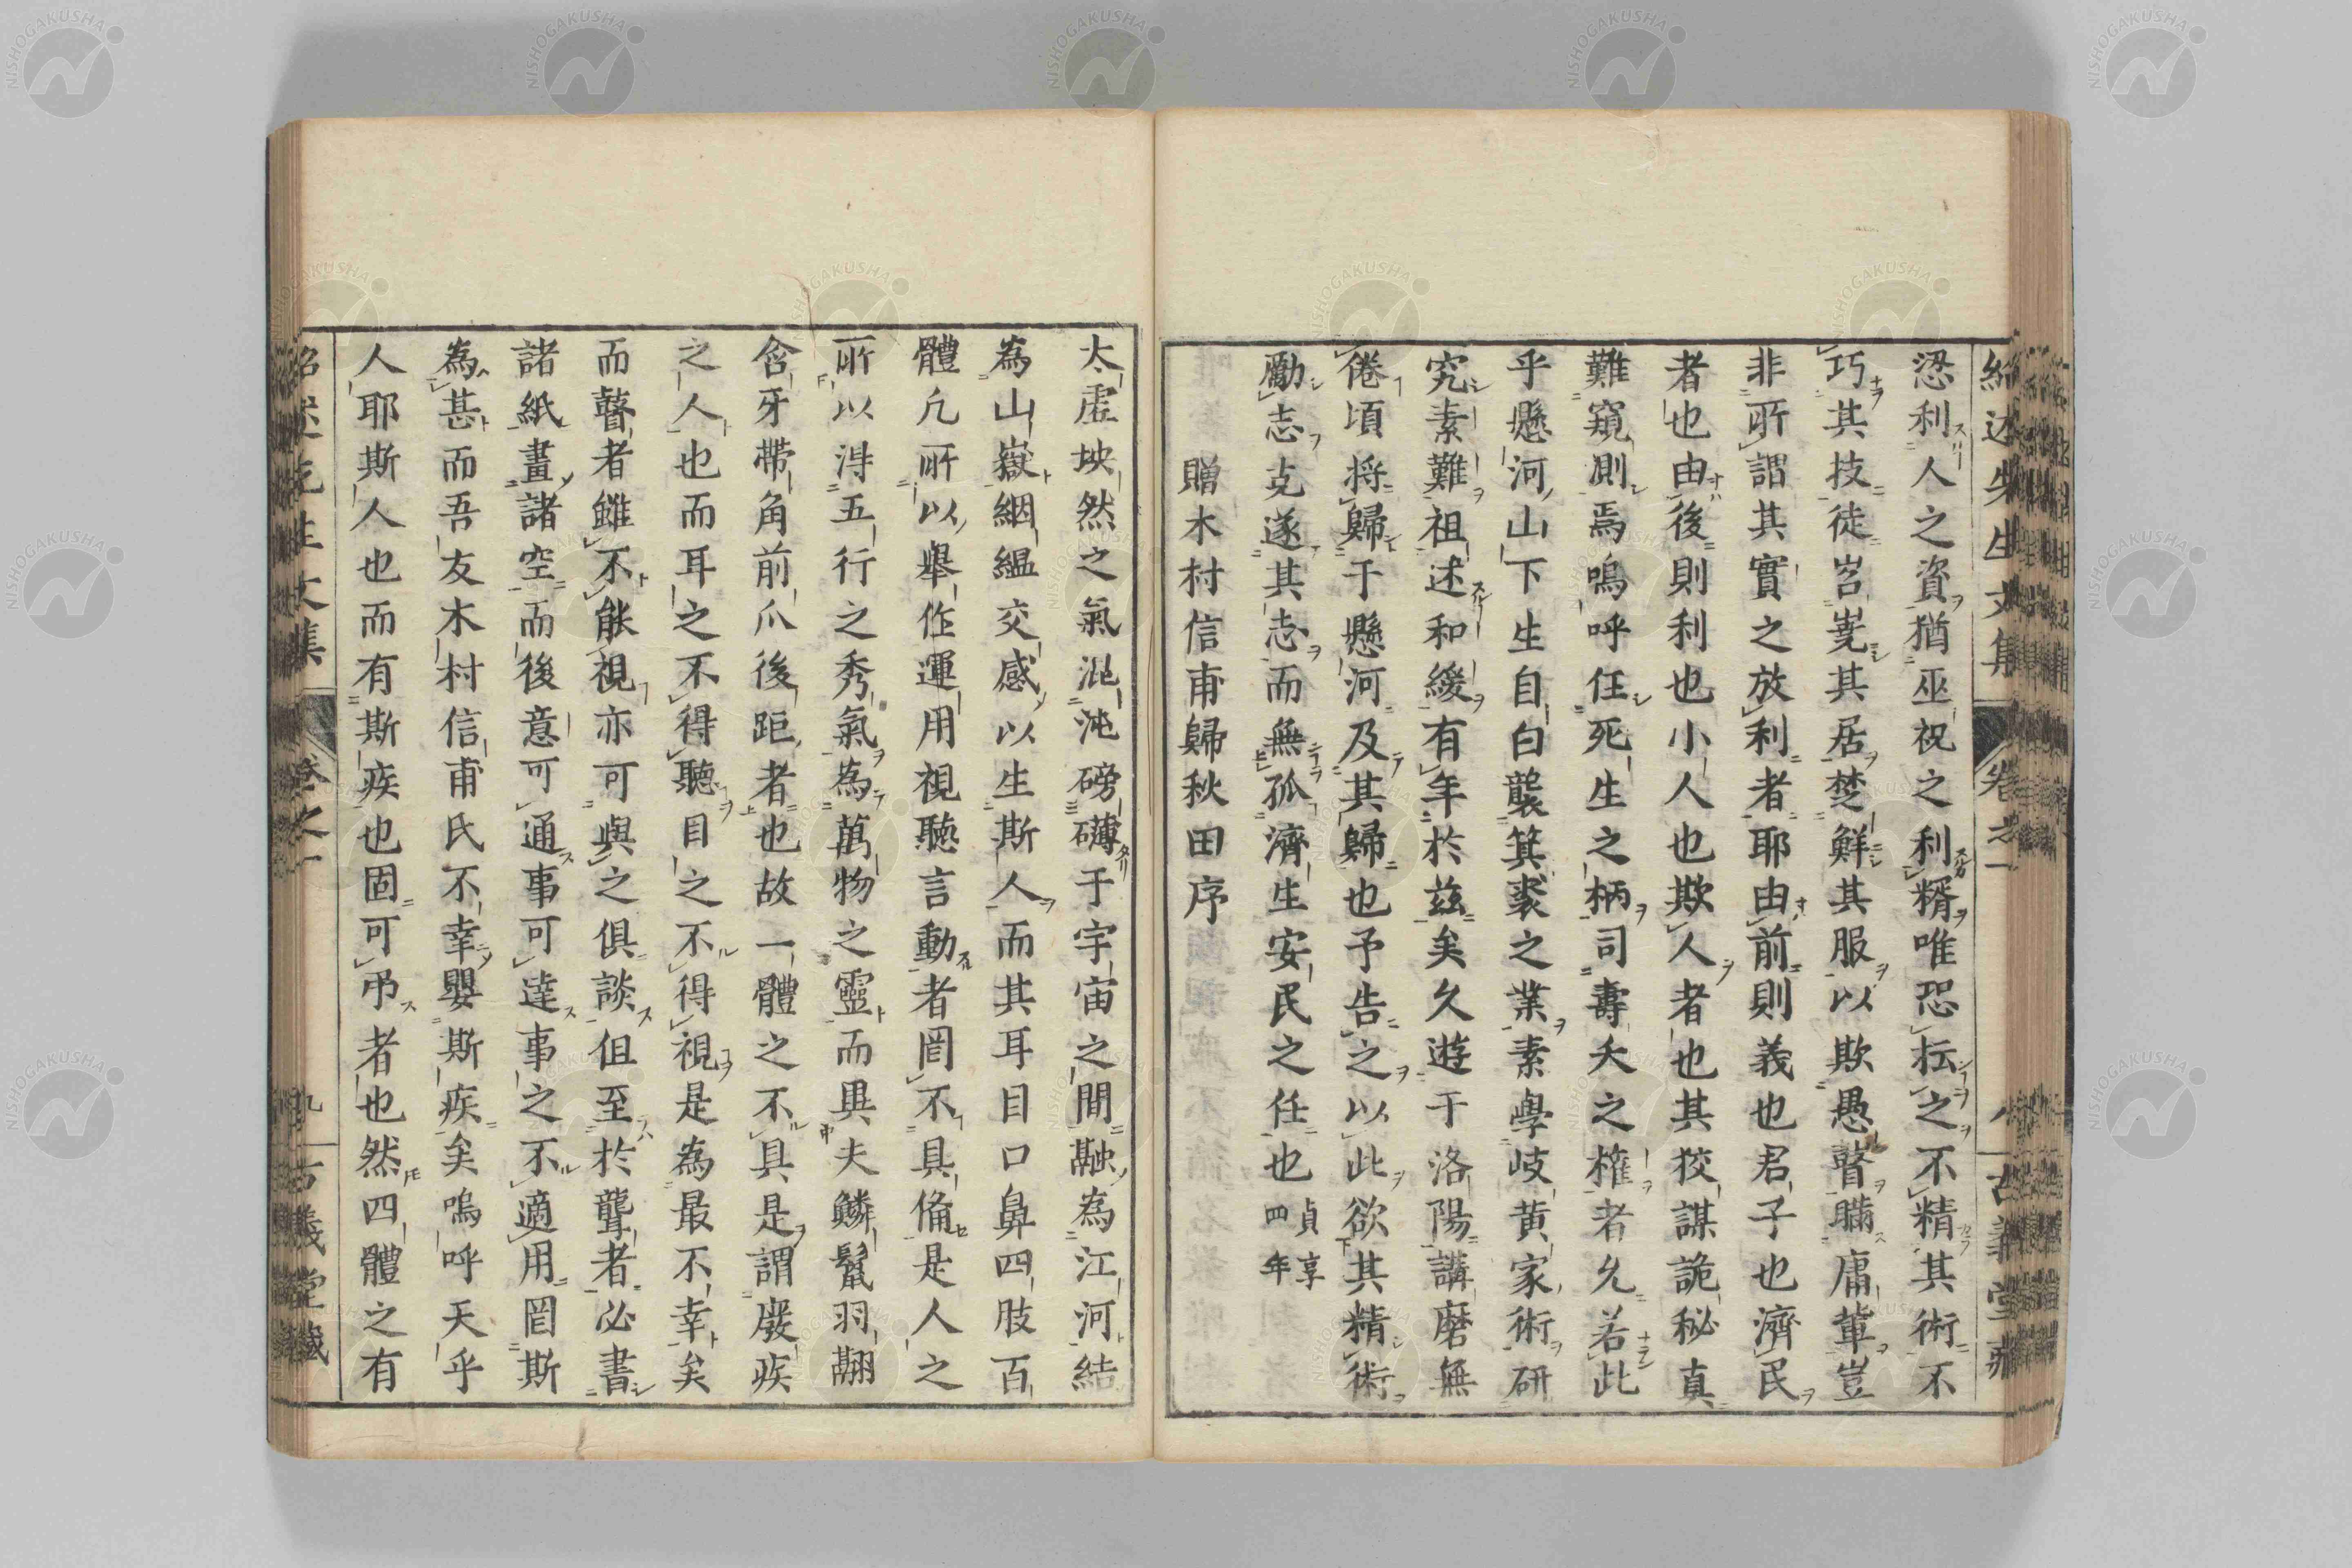 紹述先生文集 卷之一 八 古義堂藏
恐利人之資猶巫祝之利糈唯恐抎之不精其術不
巧其技徒岧嶤其居楚鮮其服以欺愚瞽瞞庸輩豈
非所謂其實之放利者耶由前則義也君子也濟民
者也由後則利也小人也欺人者也其狡謀詭秘真
難窺測焉嗚呼任死生之柄司壽夭之權者允若此
乎懸河山下生自白襲箕裘之業素學岐黄家術研
究素難祖述和緩有年於茲矣久遊于洛陽講磨無
倦頃将歸于懸河及其歸也予告之以此欲其精術
勵志克遂其志而無孤濟生安民之任也 貞享四年
贈木村信甫歸秋田序
太虛坱然之氣混沌磅礴于宇宙之間融為江河結
為山嶽絪縕交感以生斯人而其耳目口鼻四肢百
體凢所以舉作運用視聽言動者罔不具俻是人之
所以淂五行之秀氣為萬物之靈而異夫鱗鬣羽翮
含牙帶角前爪後距者也故一體之不具是謂廢疾
之人也而耳之不得聽目之不得視是為最不幸矣
而瞽者雖不能視亦可與之俱談但至於聾者必書
諸紙畫諸空而後意可通事可達事之不適用罔斯
為甚而吾友木村信甫氏不幸嬰斯疾矣嗚呼天乎
人耶斯人也而有斯疾也固可弔者也然四體之有
紹述先生文集 卷之一 九 古義堂藏